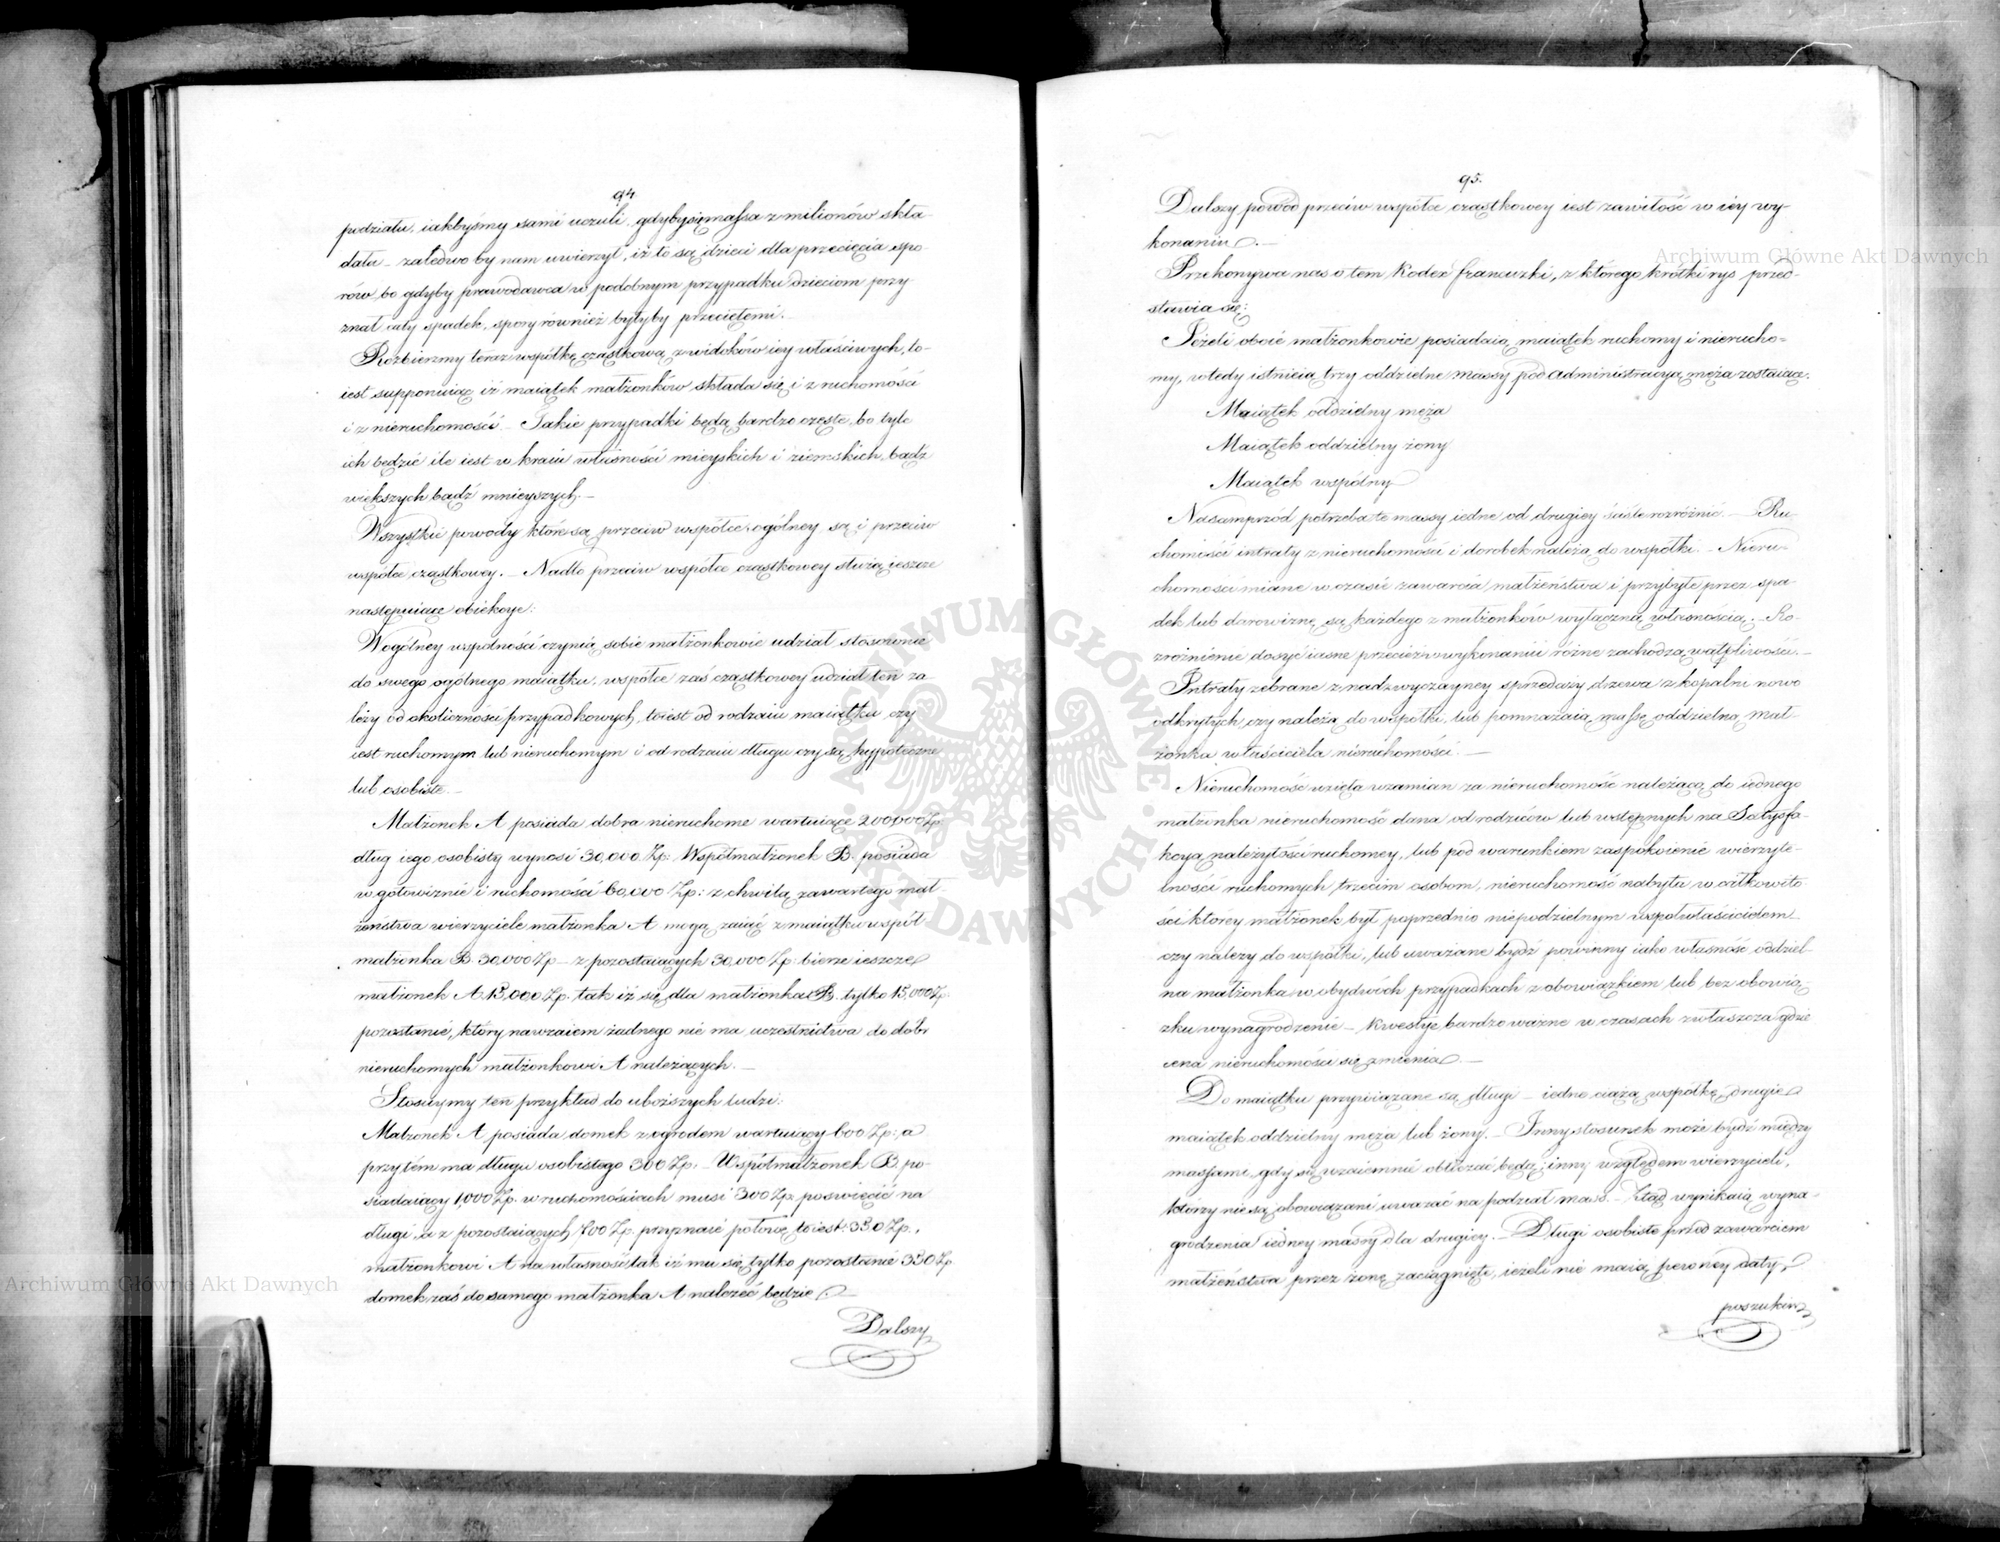 94
podziału, iakbyśmy sami uczuli, gdyby się massa z milionów skła-
dała – zaledwo by nam uwierzył, iż to są dzieci dla przecięcia spo-
rów, bo gdyby prawodawca w podobnym przypadku dzieciom przy-
znał cały spadek, spory również byłyby przeciętemi. –
Rozbierzmy teraz współkę cząstkową z widoków iey właściwych, to-
iest supponuiąc iż maiątek małżonków składa się i z ruchomości
i z nieruchomości. – Takie przypadki będą bardzo częste, bo tyle
ich będzie ile iest w kraiu własności mieyskich i ziemskich bądź
większych bądź mnieyszych. –
Wszystkie powody które są przeciw współce ogólney są i przeciw
współce cząstkowey. – Nadto przeciw współce cząstkowey służą ieszcze
następuiące obiekcye:
W ogólney wspólności czynią sobie małżonkowie udział stosownie
do swego ogólnego maiątku, współce zaś cząstkowey udział ten za
leży od okoliczności przypadkowych, toiest od rodzaiu maiątku czy
iest ruchomym lub nieruchomym i od rodzaiu długu czy są hypoteczne
lub osobiste. –
Małżonek A posiada dobra nieruchome wartuiące 200,000 Zp.
dług iego osobisty wynosi 30,000 Zp: Współmałżonek B. posiada
w gotowiznie i ruchomości 60,000 Zp: z chwilą zawartego mał-
żeństwa wierzyciele małżonka A mogą zaiąć z maiątku współ
małżonka B 30,000 Zp – z pozostaiących 30,000 Zp: bierze ieszcze
małżonek A 15,000 Zp. tak iż się dla małżonka B. tylko 15,000 Zp.
pozostanie, który nawzaiem żadnego nie ma uczestnictwa do dóbr
nieruchomych małżonkowi A należących. –
Stosuymy ten przykład do uboższych ludzi:
Małżonek A posiada domek z ogrodem wartuiący 600 Zp: a
przytém ma długu osobistego 300 Zp. – Współmałżonek B. po-
siadaiący 1,000 Zp. w ruchomościach musi 300 Zp poświęcić na
długi, a z pozostaiących 700 Zp. przyznaić połowę toiest 350 Zp.,
małżonkowi A na własność tak iż mu się tylko pozostanie 350 Zp
domek zaś do samego małżonka A należeć będzie. –
Dalszy
95.
Dalszy powód przeciw współce cząstkowey iest zawiłość w iey wy-
konaniu. –
Przekonywa nas o tem Kodex francuzki, z którego krótki rys przed-
stawia się:
Jeżeli oboie małżonkowie posiadaią maiątek ruchomy i nierucho-
my, wtedy istnieią trzy oddzielne massy pod administracyą męża zostaiące.
Maiątek oddzielny męża
Maiątek oddzielny żony
Maiątek wspólny
Nasamprzód potrzeba te massy iedne od drugiey ściśle rozróżnić. – Ru-
chomości intraty z nieruchomości i dorobek należą do współki. – Nieru-
chomości miane w czasie zawarcia małżeństwa i przybyłe przez spa-
dek lub darowiznę, są każdego z małżonków wyłączną własnością. – Ro-
zróżnienie dosyć iasne przecież w wykonaniu różne zachodzą wątpliwości. –
Intraty zebrane z nadzwyczayney sprzedaży drzewa z kopalni nowo
odkrytych, czy należą do współki, lub pomnażaią massę oddzielną mał-
żonka właściciela nieruchomości. –
Nieruchomość wzięta wzamian za nieruchomość należącą do iednego
małżonka nieruchomość dana od rodziców lub wstępnych na Satysfa-
kcyą należytości ruchomey, lub pod warunkiem zaspokoienie wierzyte-
lności ruchomych trzecim osobom, nieruchomość nabyta w całkowito
ści którey małżonek był poprzednio niepodzielnym współwłaścicielem
czy należy do współki, lub uważane bydź powinny iako własność oddziel
na małżonka w obydwóch przypadkach z obowiązkiem lub bez obowią-
zku wynagrodzenie – kwestye bardzo ważne w czasach zwłaszcza gdzie
cena nieruchomości się zmienia. –
Do maiątku przywiązane są długi – iedne ciążą współkę, drugie
maiątek oddzielny męża lub żony. – Inny stosunek może bydź między
massami, gdy się wzaiemnie obliczać będą, inny względem wierzycieli,
którzy nie są obowiązani uważać na podział mass. – Ztąd wynikaią wyna-
grodzenia iedney massy dla drugiey. – Długi osobiste przed zawarciem
małżeństwa przez żonę zaciągnięte, ieżeli nie maią pewney daty,
poszukiw
Archiwum Główne Akt Dawnych
Archiwum Główne Akt Dawnych
ARCHIWUM GŁÓWNE
AKT DAWNYCH